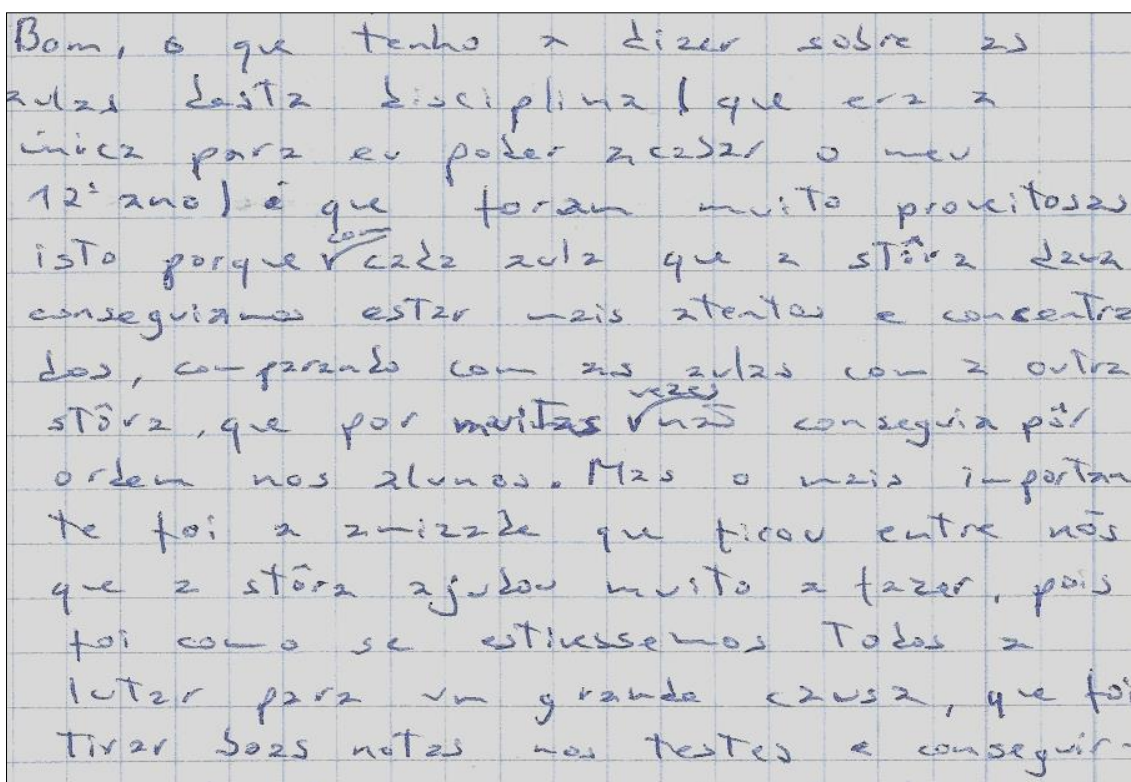 Bom, o que tenho a dizer sobre as
aulas desta disciplina (que era a
única para eu poder acabar o meu
12º ano) é que foram muito proveitosas
isto porque com cada aula que a stôra dava
conseguiamos estar mais atentos e consentra
dos, comparando com as aulas com a outra
stôra, que por muitas vezes não conseguia pôr
ordem nos alunos. Mas o mais importan
te foi a amizade que ficou entre nós
que a stôra ajudou muito a fazer, pois
foi como se estivessemos todos a
lutar para um grande causa, que foi
tirar boas notas nos testes e conseguir-